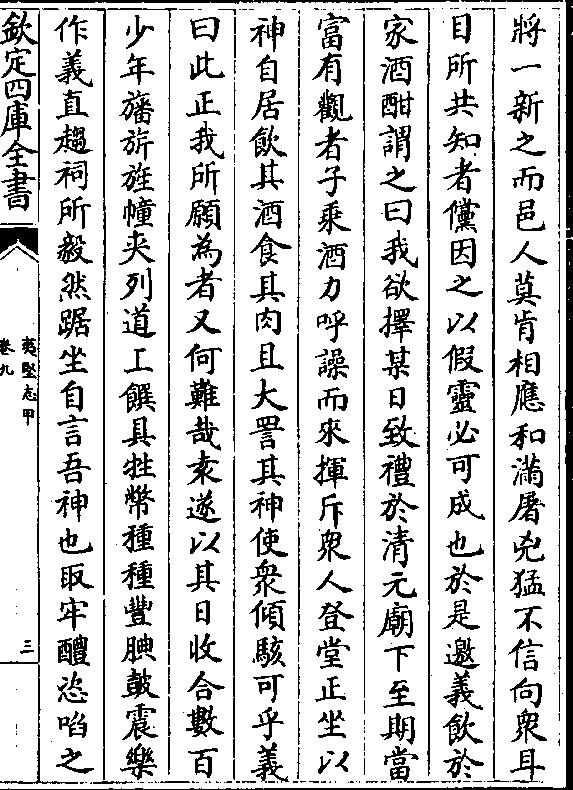 將一新之而邑人莫肯相應和滿屠兇猛不信向衆耳
目所共知者儻因之以假靈必可成也於是邀義飲於
家酒酣謂之曰我欲擇某日致禮於清元廟下至期當
富有觀者子乘酒力呼譟而來揮斥衆人登堂正坐以
神自居飲其酒食其肉且大詈其神使衆傾駭可乎義
曰此正我所願為者又何難哉袁遂以其日收合數百
少年旛旂旌幢夾列道工饌具牲幣種種豐腆鼓震樂
作義直趨祠所毅然踞坐自言吾神也取牢醴恣啗之
欽定四庫全書
夷堅志甲
卷九
三